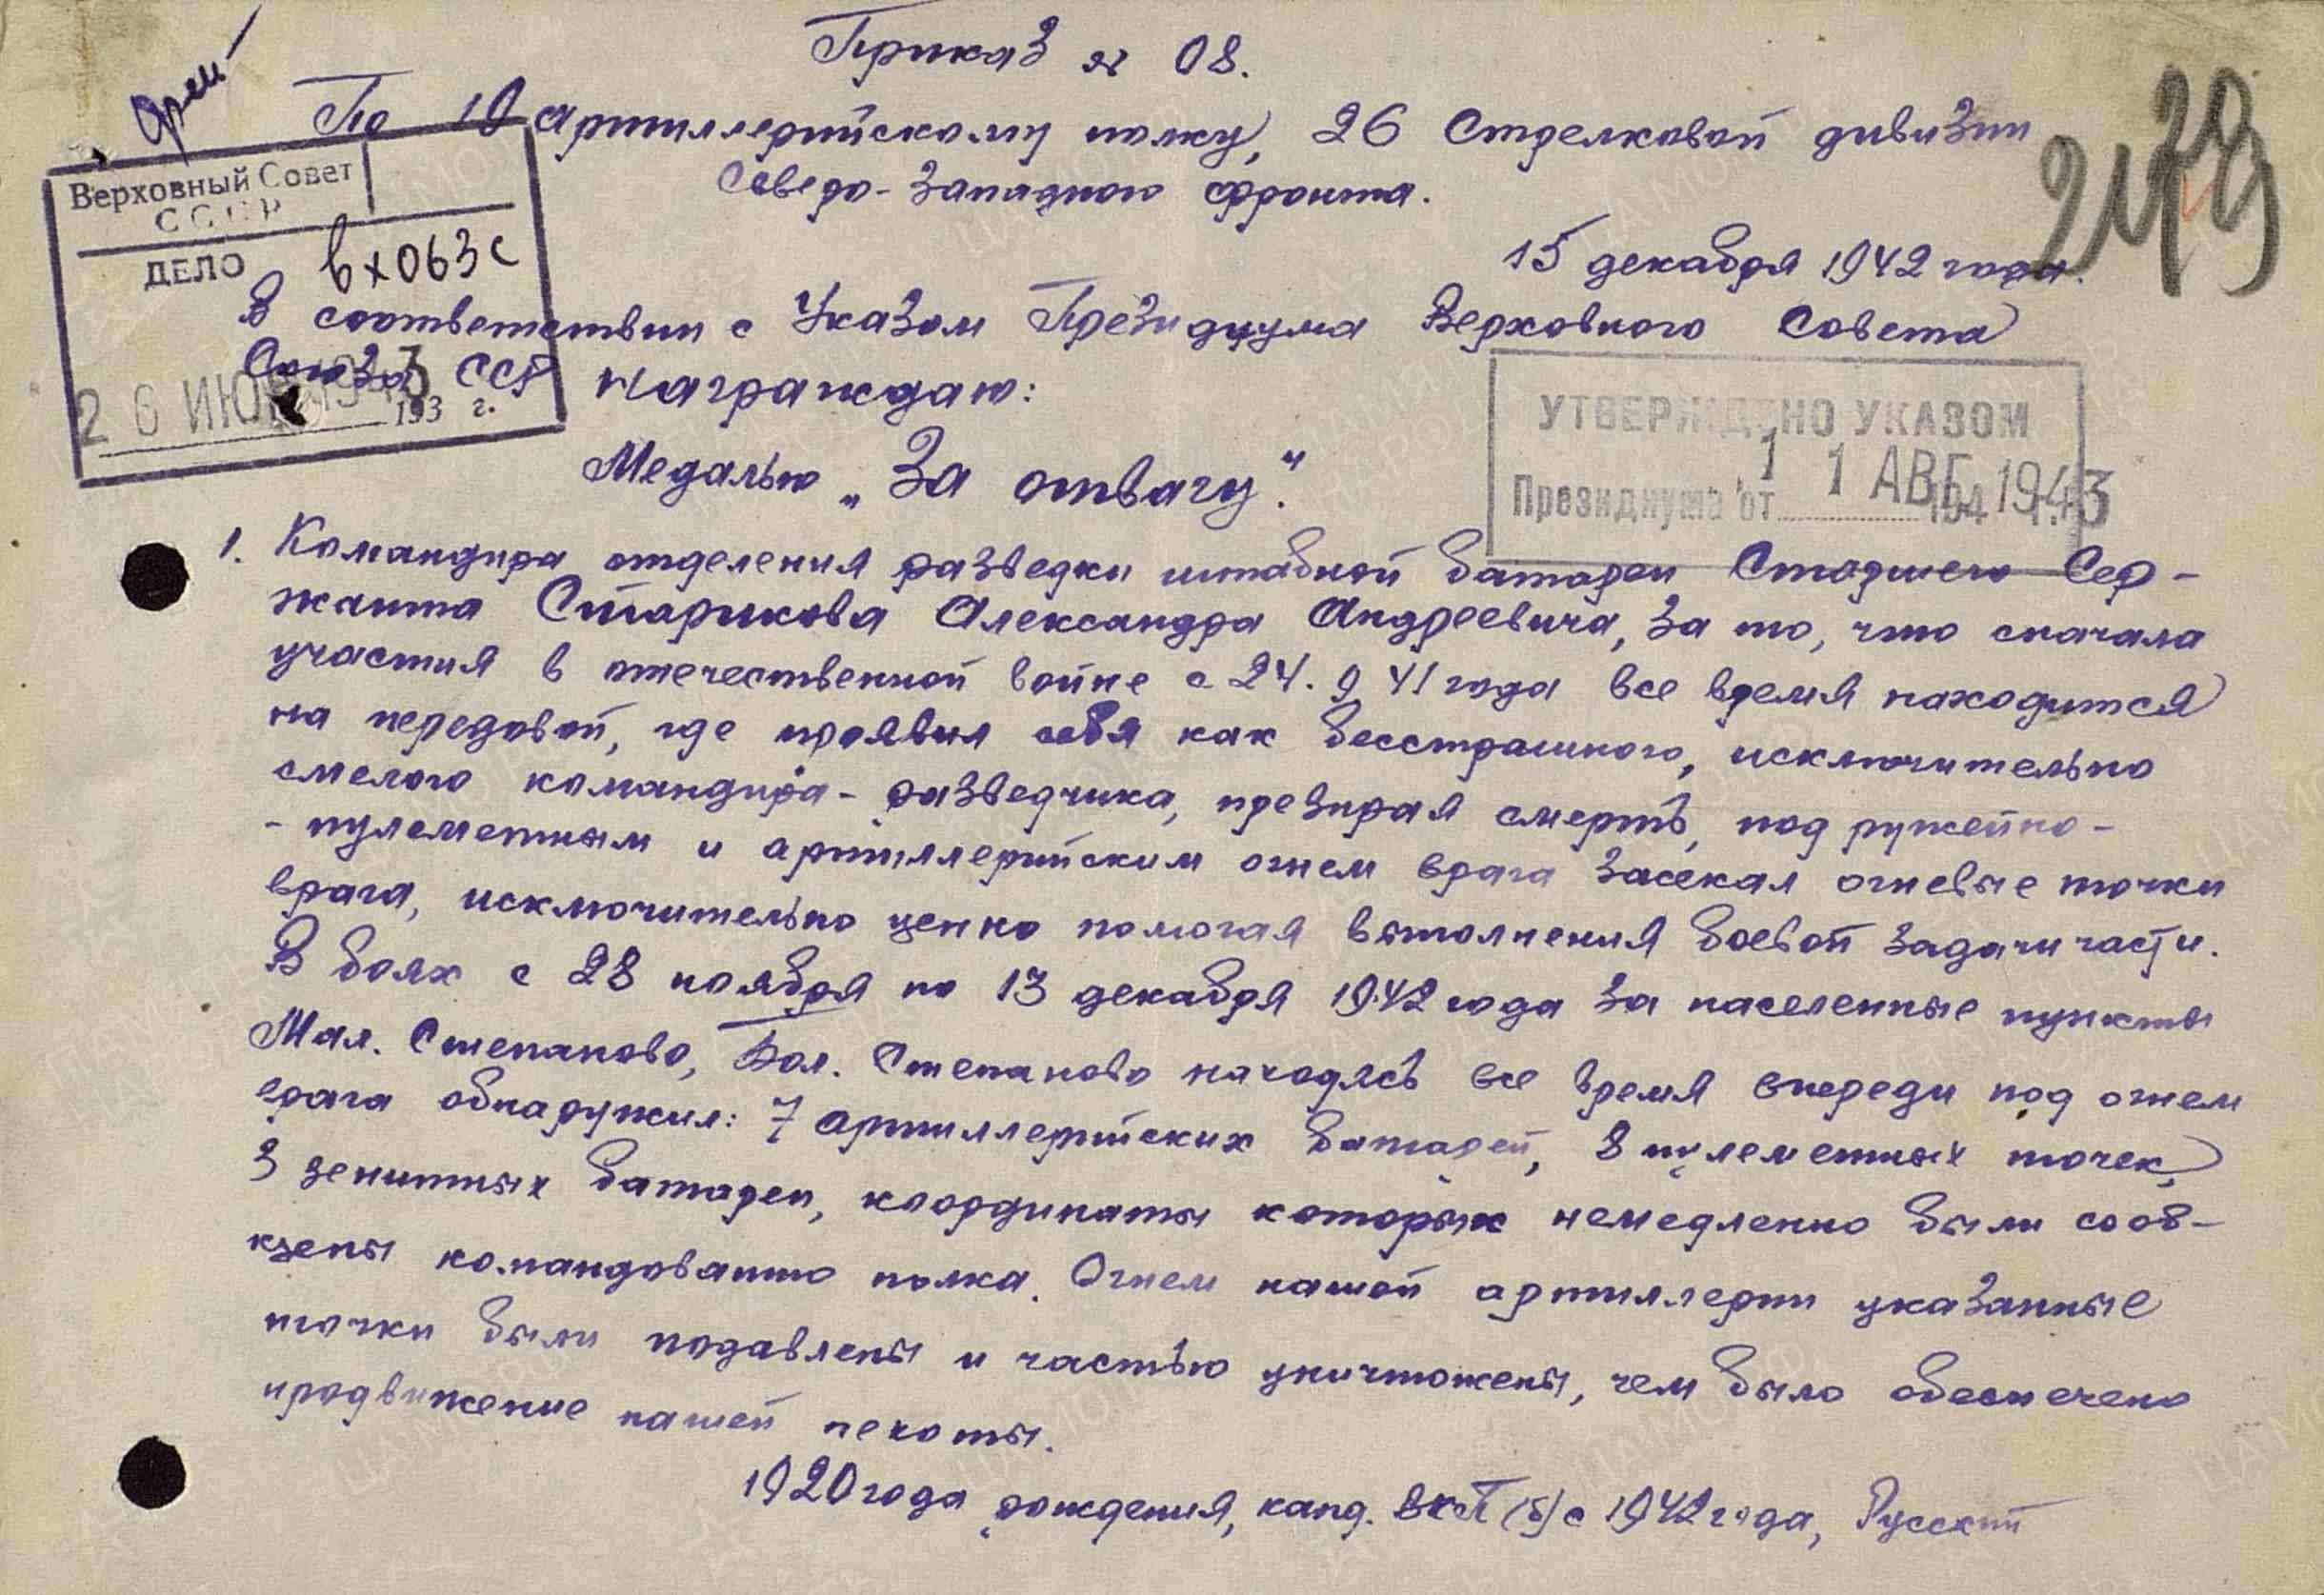 Приказ № 08.
По 19 Артиллерийскому полку, 26 Стрелковой дивизии
Северо-Западного фронта.
15 декабря 1942 года.
Верховный Совет
СССР
ДЕЛО вх063с
26 ИЮН 1943
193 г.
В соответствии с Указом Президиума Верховного Совета
Союза ССР Награждаю:
УТВЕРЖДЕНО УКАЗОМ
Президиума от 11 АВГ. 1943
194 г.
Медалью „За отвагу".
1. Командира отделения разведки штабной батареи Старшего Сер-
жанта Старикова Александра Андреевича, за то, что сначала
участия в отечественной войне с 24.9 41 года все время находится
на передовой, где проявил себя как бесстрашного, исключительно
смелого командира-разведчика, презирая смерть, под ружейно-
-пулеметным и артиллерийским огнем врага засекал огневые точки
врага, исключительно ценно помогая выполнения боевой задачи части.
В боях с 28 ноября по 13 декабря 1942 года за населенные пункты
Мал. Степаново, Бол. Степаново находясь все время впереди под огнем
врага обнаружил: 7 артиллерийских батарей, 8 пулеметных точек,
3 зенитных батареи, координаты которых немедленно были сооб-
щены командованию полка. Огнем нашей артиллерии указанные
точки были подавлены и частью уничтожены, чем было обеспечено
продвижение нашей пехоты.
1920 года рождения, канд. ВКП(б) с 1942 года, Русский